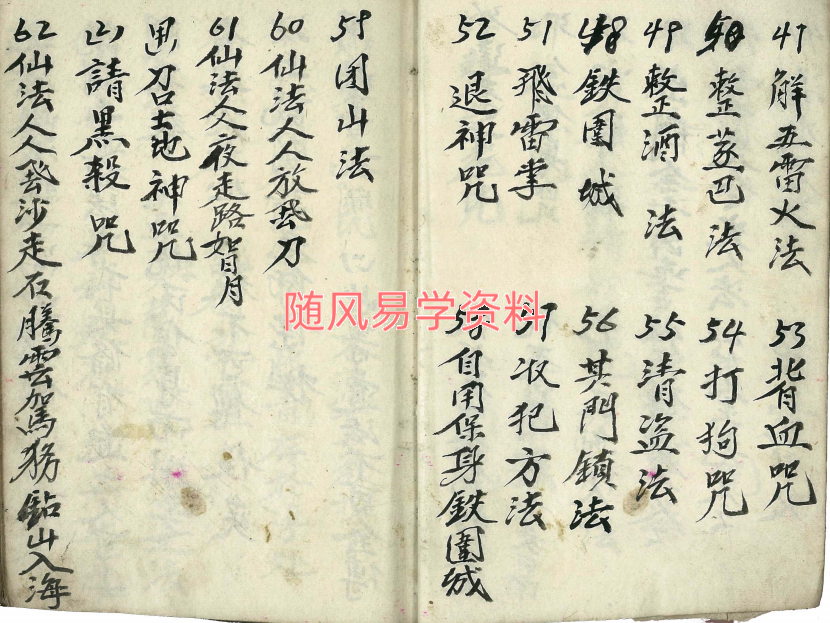 47 解五雷火法
整蒸巴法
49 整酒法
48 鉄圍城
51 飛雷掌
52 退神咒
53 背血咒
54 打狗咒
55 清盗法
56 其門鎖法
57 收犯方法
58 自用保身鉄圍城
59 团山法
60 仙法人人放飛刀
61 仙法人人夜走路
召土地神咒
請黑殺咒
62 仙法人人飛沙走石騰雲駕務鉆山入海
随风易学资料